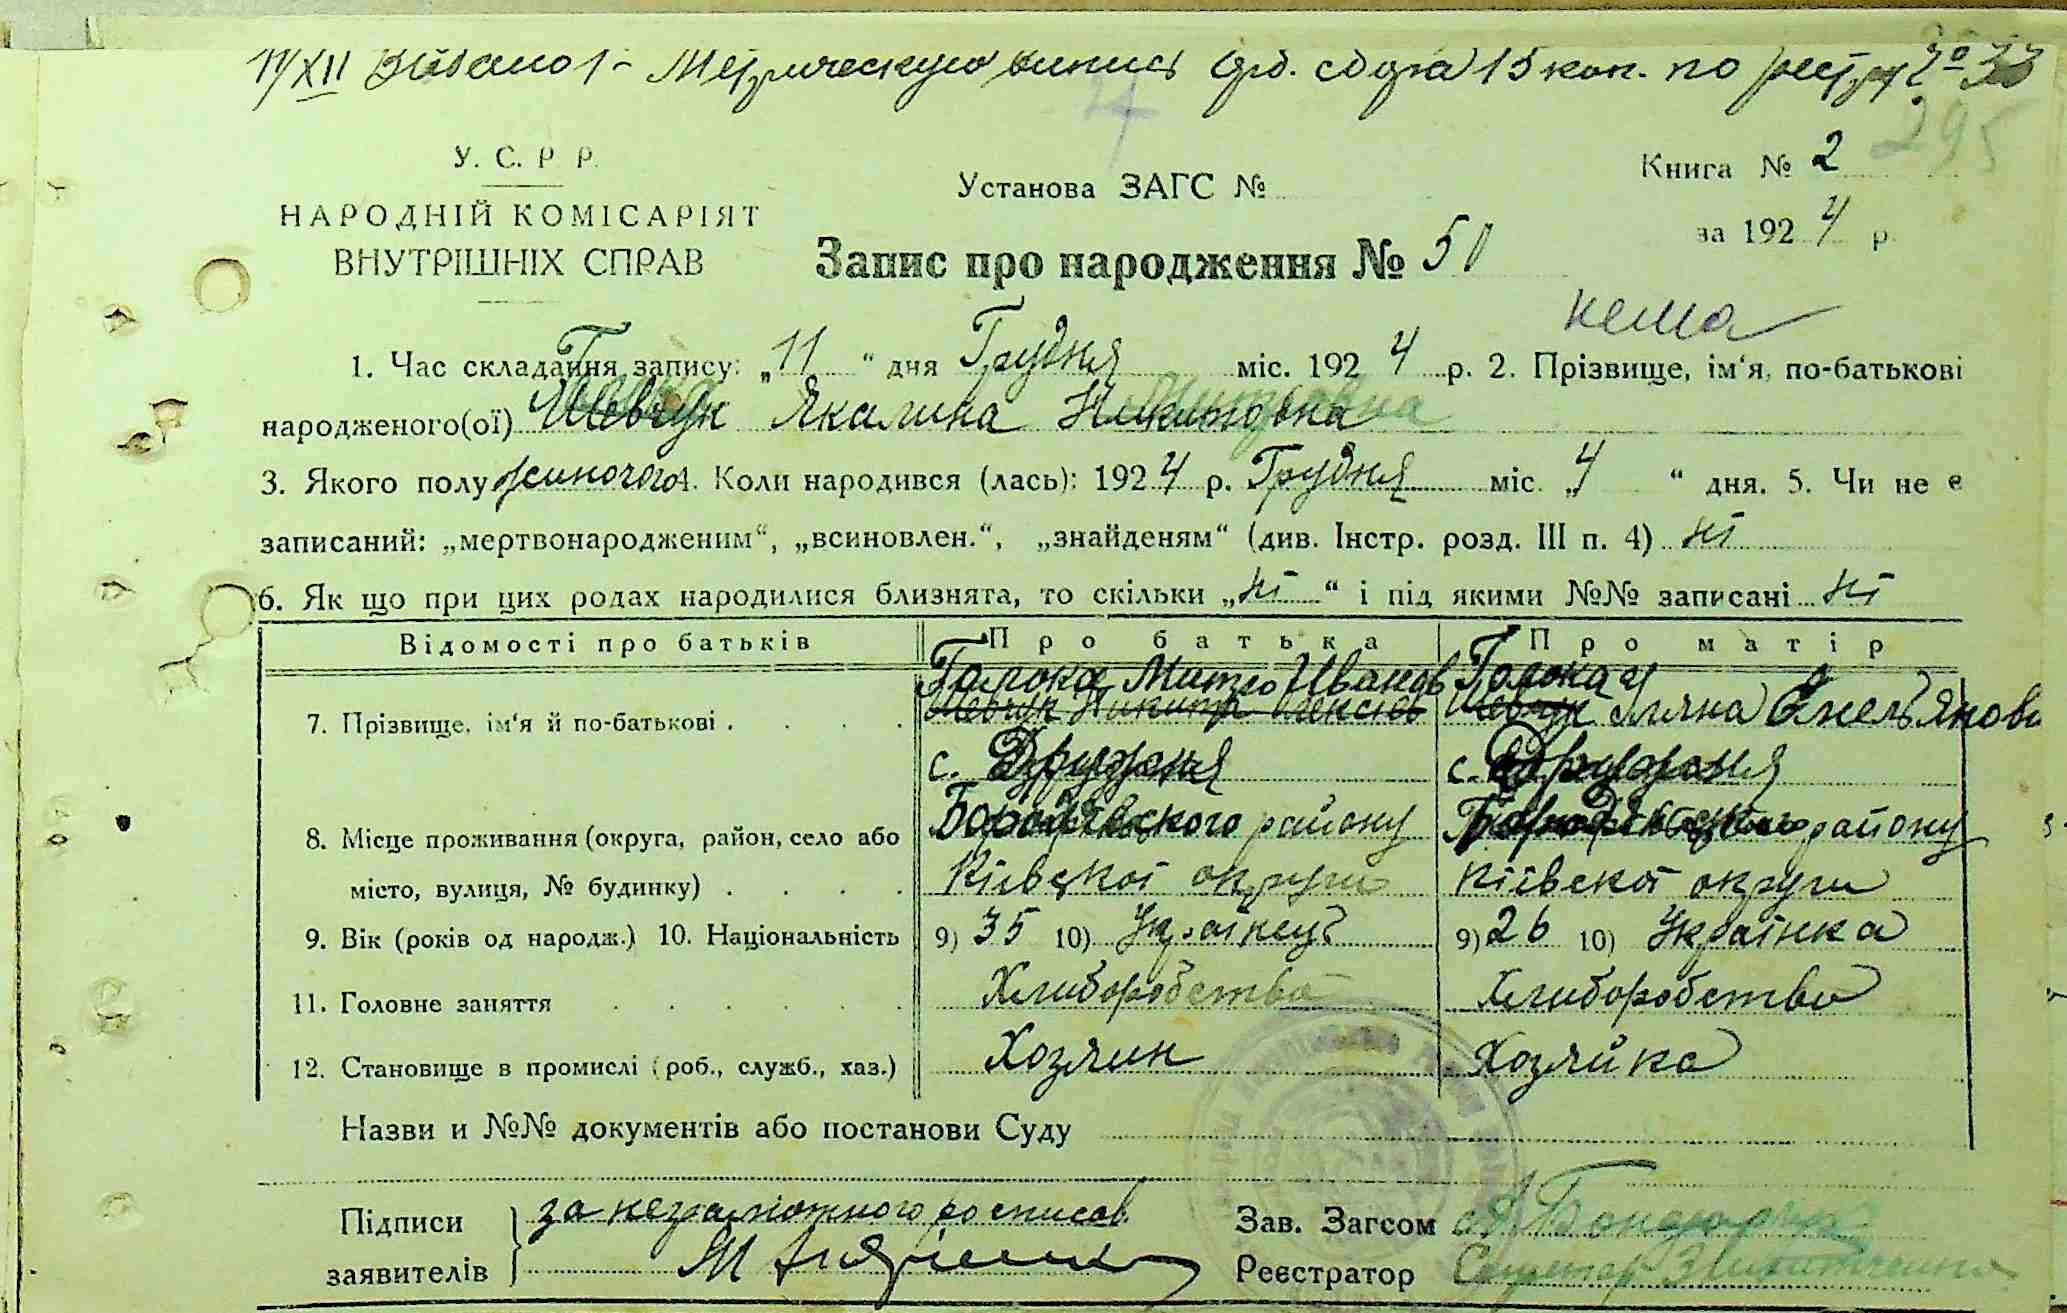 11/XII Видано 1 - Метрическую выпись зб. 15 коп. по реестру № 33
295
У. С. Р. Р.
НАРОДНІЙ КОМІСАРІЯТ
ВНУТРІШНІХ СПРАВ
Установа ЗАГС №
Книга № 2
за 1924 р.
Запис про народження № 51
нема
1. Час складання запису: „11“ дня Грудня міс. 1924 р. 2. Прізвище, ім‘я, по-батькові
народженого(ої) Шевчук Якилина Никитовна
3. Якого полу жиночого 4. Коли народився (лась): 1924 р. Грудня міс. „4“ дня. 5. Чи не є
записаний: „мертвонародженим“, „всиновлен.“, „знайденям“ (див. Інстр. розд. III п. 4) ні
6. Як що при цих родах народилися близнята, то скільки „ні“ і під якими №№ записані ні
Відомості про батьків Про батька Про матір
Галока Митро Иванов Галока
7. Прізвище, ім‘я й по-батькові . . . . Шевчук Никита Олексіев Шевчук Ганна Омельянова
с. Дружня с. Дружня
8. Місце проживання (округа, район, село або Бородянского району Бородянского району
місто, вулиця, № будинку) . . . . Кіівскоі округи Кіівскоі округи
9. Вік (років од народж.) 10. Національність 9) 35 10) Украінець 9) 26 10) Украінка
11. Головне заняття . . . . . . Хлиборобство Хлиборобство
12. Становище в промислі (роб., служб., хаз.) Хозяин Хозяйка
Назви и №№ документів або постанови Суду
Підписи заявителів за неграмотного росписав
Зав. Загсом Бондарчук
Реєстратор